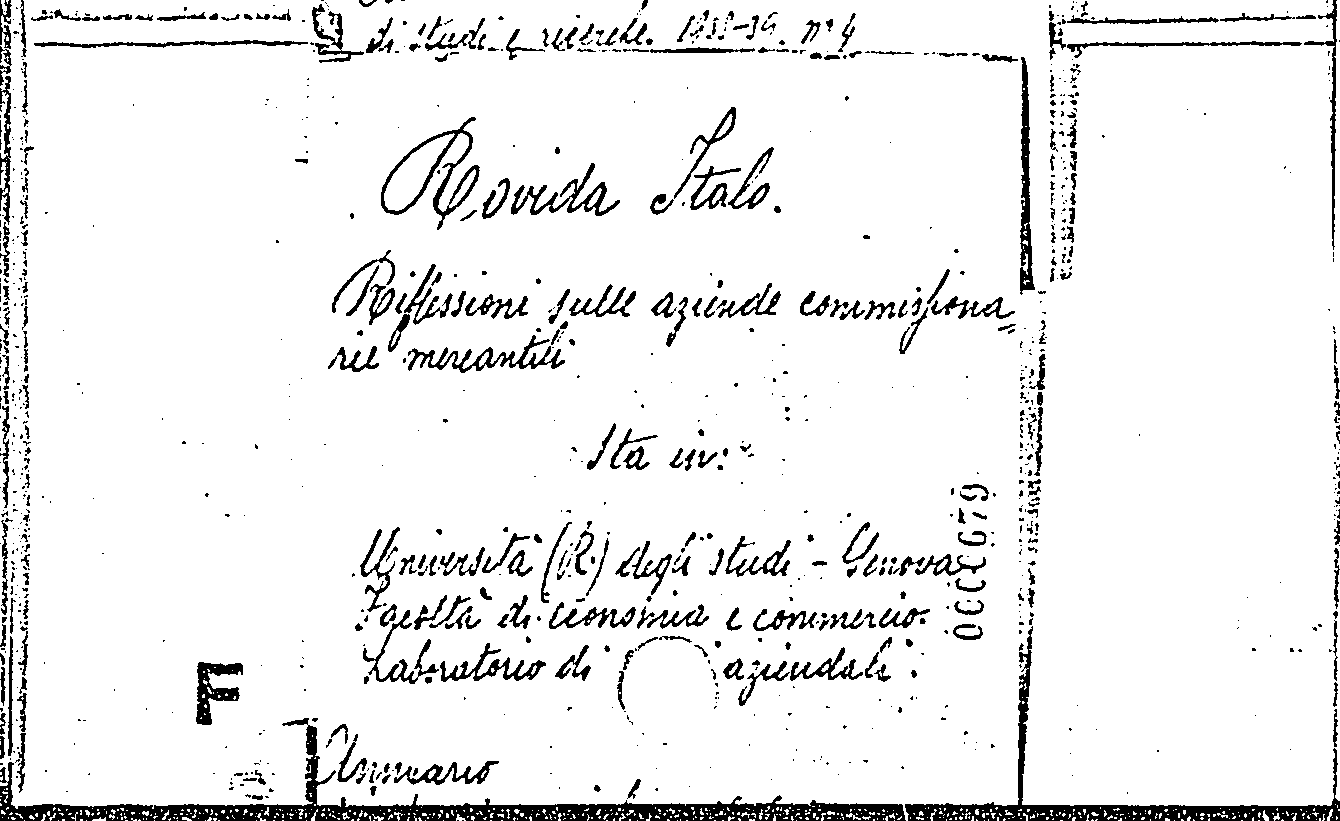 di studi e ricerche. 1938-39. nº 4
Rovida Italo.
Riflessioni sulle aziende commissiona=
rie mercantili
Sta in:
Università (R.) degli studi - Genova
Facoltà di economia e commercio.
Laboratorio di aziendali.
0000679
F
Annuario